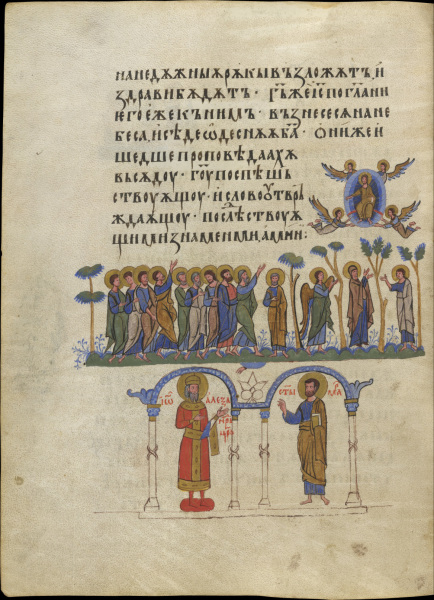 нанедѫжныѫ рѫкы възложѧтъ, и
здрави бѫдѫтъ · г҃ь же і҃с по гл҃ани
и его еже къ нимъ · възнесесѧ на не
беса, и сѣде ѡ деснѫѫ б҃а · они же и
шедше проповѣдаахѫ
въсѫдоу · г҃оу поспѣшь
ствоуѫщоу · и слово оутврь
ждаѫщоу · послѣствоуѫ
щими знаменми, амин :
іѡ алеѯа
ст҃ы